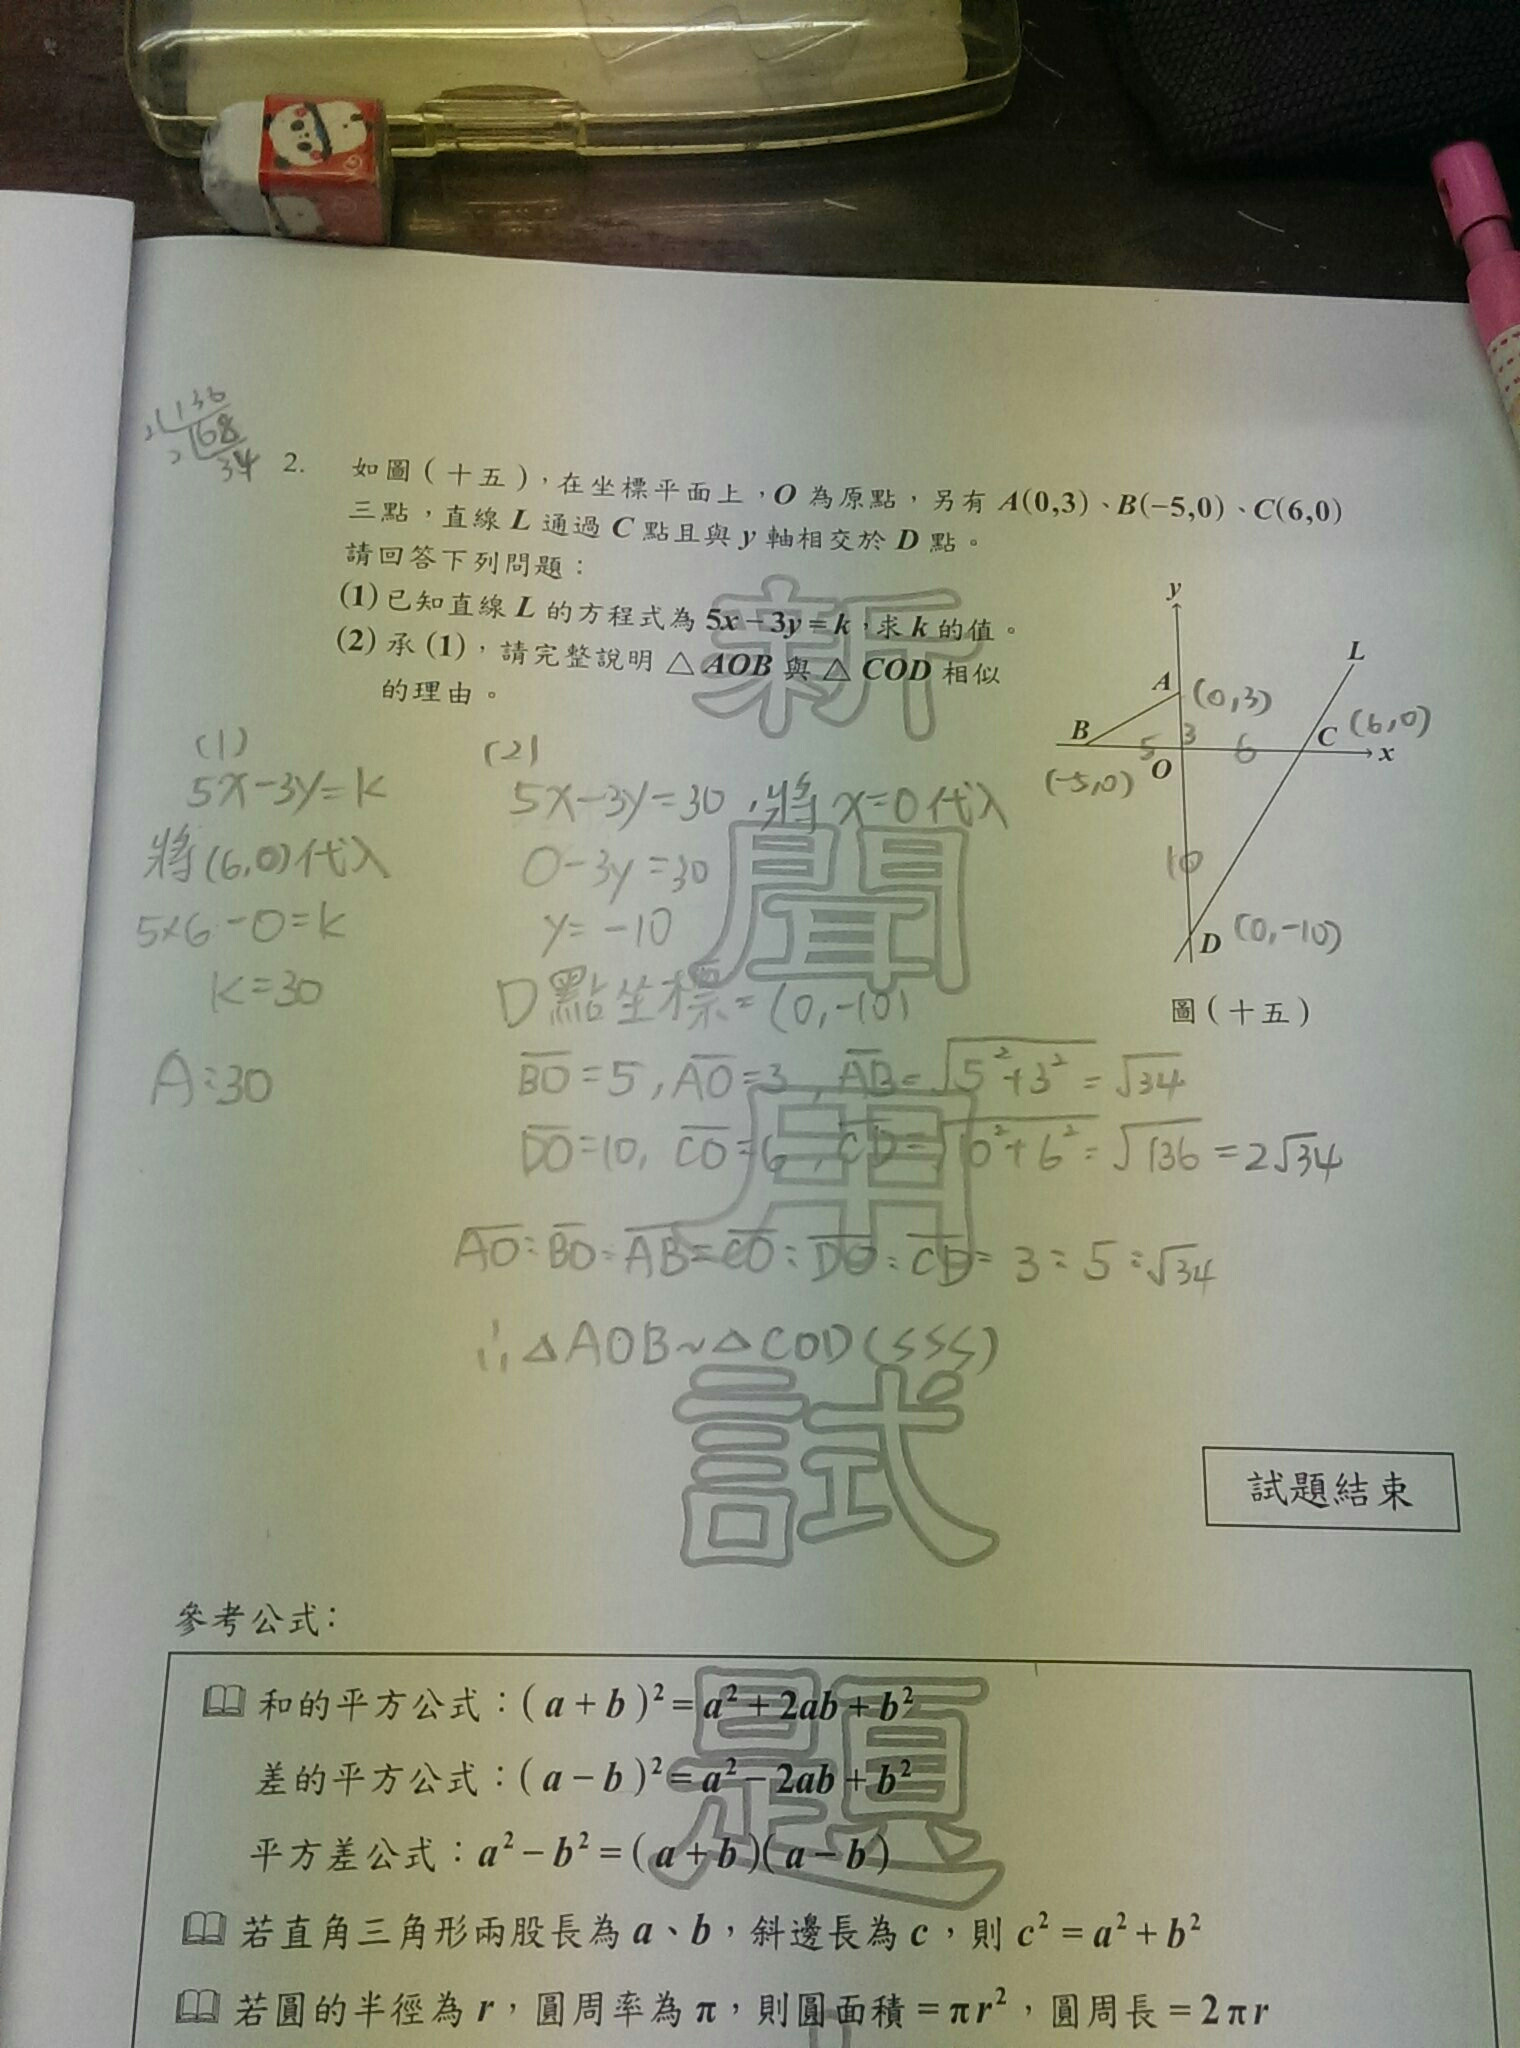 2∟136
2∟68
34
2. 如圖(十五)，在坐標平面上，O 為原點，另有 A(0,3)、B(−5,0)、C(6,0)
三點，直線 L 通過 C 點且與 y 軸相交於 D 點。
請回答下列問題：
(1) 已知直線 L 的方程式為 5x−3y=k，求 k 的值。
(2) 承 (1)，請完整說明 △AOB 與 △COD 相似
的理由。
y
L
A (0,3)
B
3
C (6,0)
5
6
x
O
(-5,0)
10
D (0,-10)
圖(十五)
(1)
5x-3y=k
將(6,0)代入
5×6-0=k
k=30
A:30
(2)
5x-3y=30,將x=0代入
0-3y=30
y=-10
D點坐標=(0,-10)
B̅O̅=5, A̅O̅=3, A̅B̅=√5²+3²=√34
D̅O̅=10, C̅O̅=6, C̅D̅=√10²+6²=√136=2√34
A̅O̅:B̅O̅:A̅B̅=C̅O̅:D̅O̅:C̅D̅=3:5:√34
∴△AOB~△COD(SSS)
新聞用試題
試題結束
參考公式：
和的平方公式：(a+b)²=a²+2ab+b²
差的平方公式：(a−b)²=a²−2ab+b²
平方差公式：a²−b²=(a+b)(a−b)
若直角三角形兩股長為 a、b，斜邊長為 c，則 c²=a²+b²
若圓的半徑為 r，圓周率為 π，則圓面積=πr²，圓周長=2πr